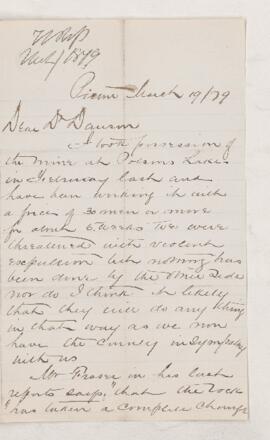 Pictou March 19/79
Dear Dr Dawson
I took possession of
the mine at Lake
in February last and
have been working it with
a force of 30 men or more
for about 6 weeks We were
threatened with violent
expulsion but nothing has
been done by the other side
nor do I think it likely
that they will do any thing
in that way as we now
have the country in sympathy
with us
Mr Fraser in his last
reports says "that the rock
"has taken a complete change